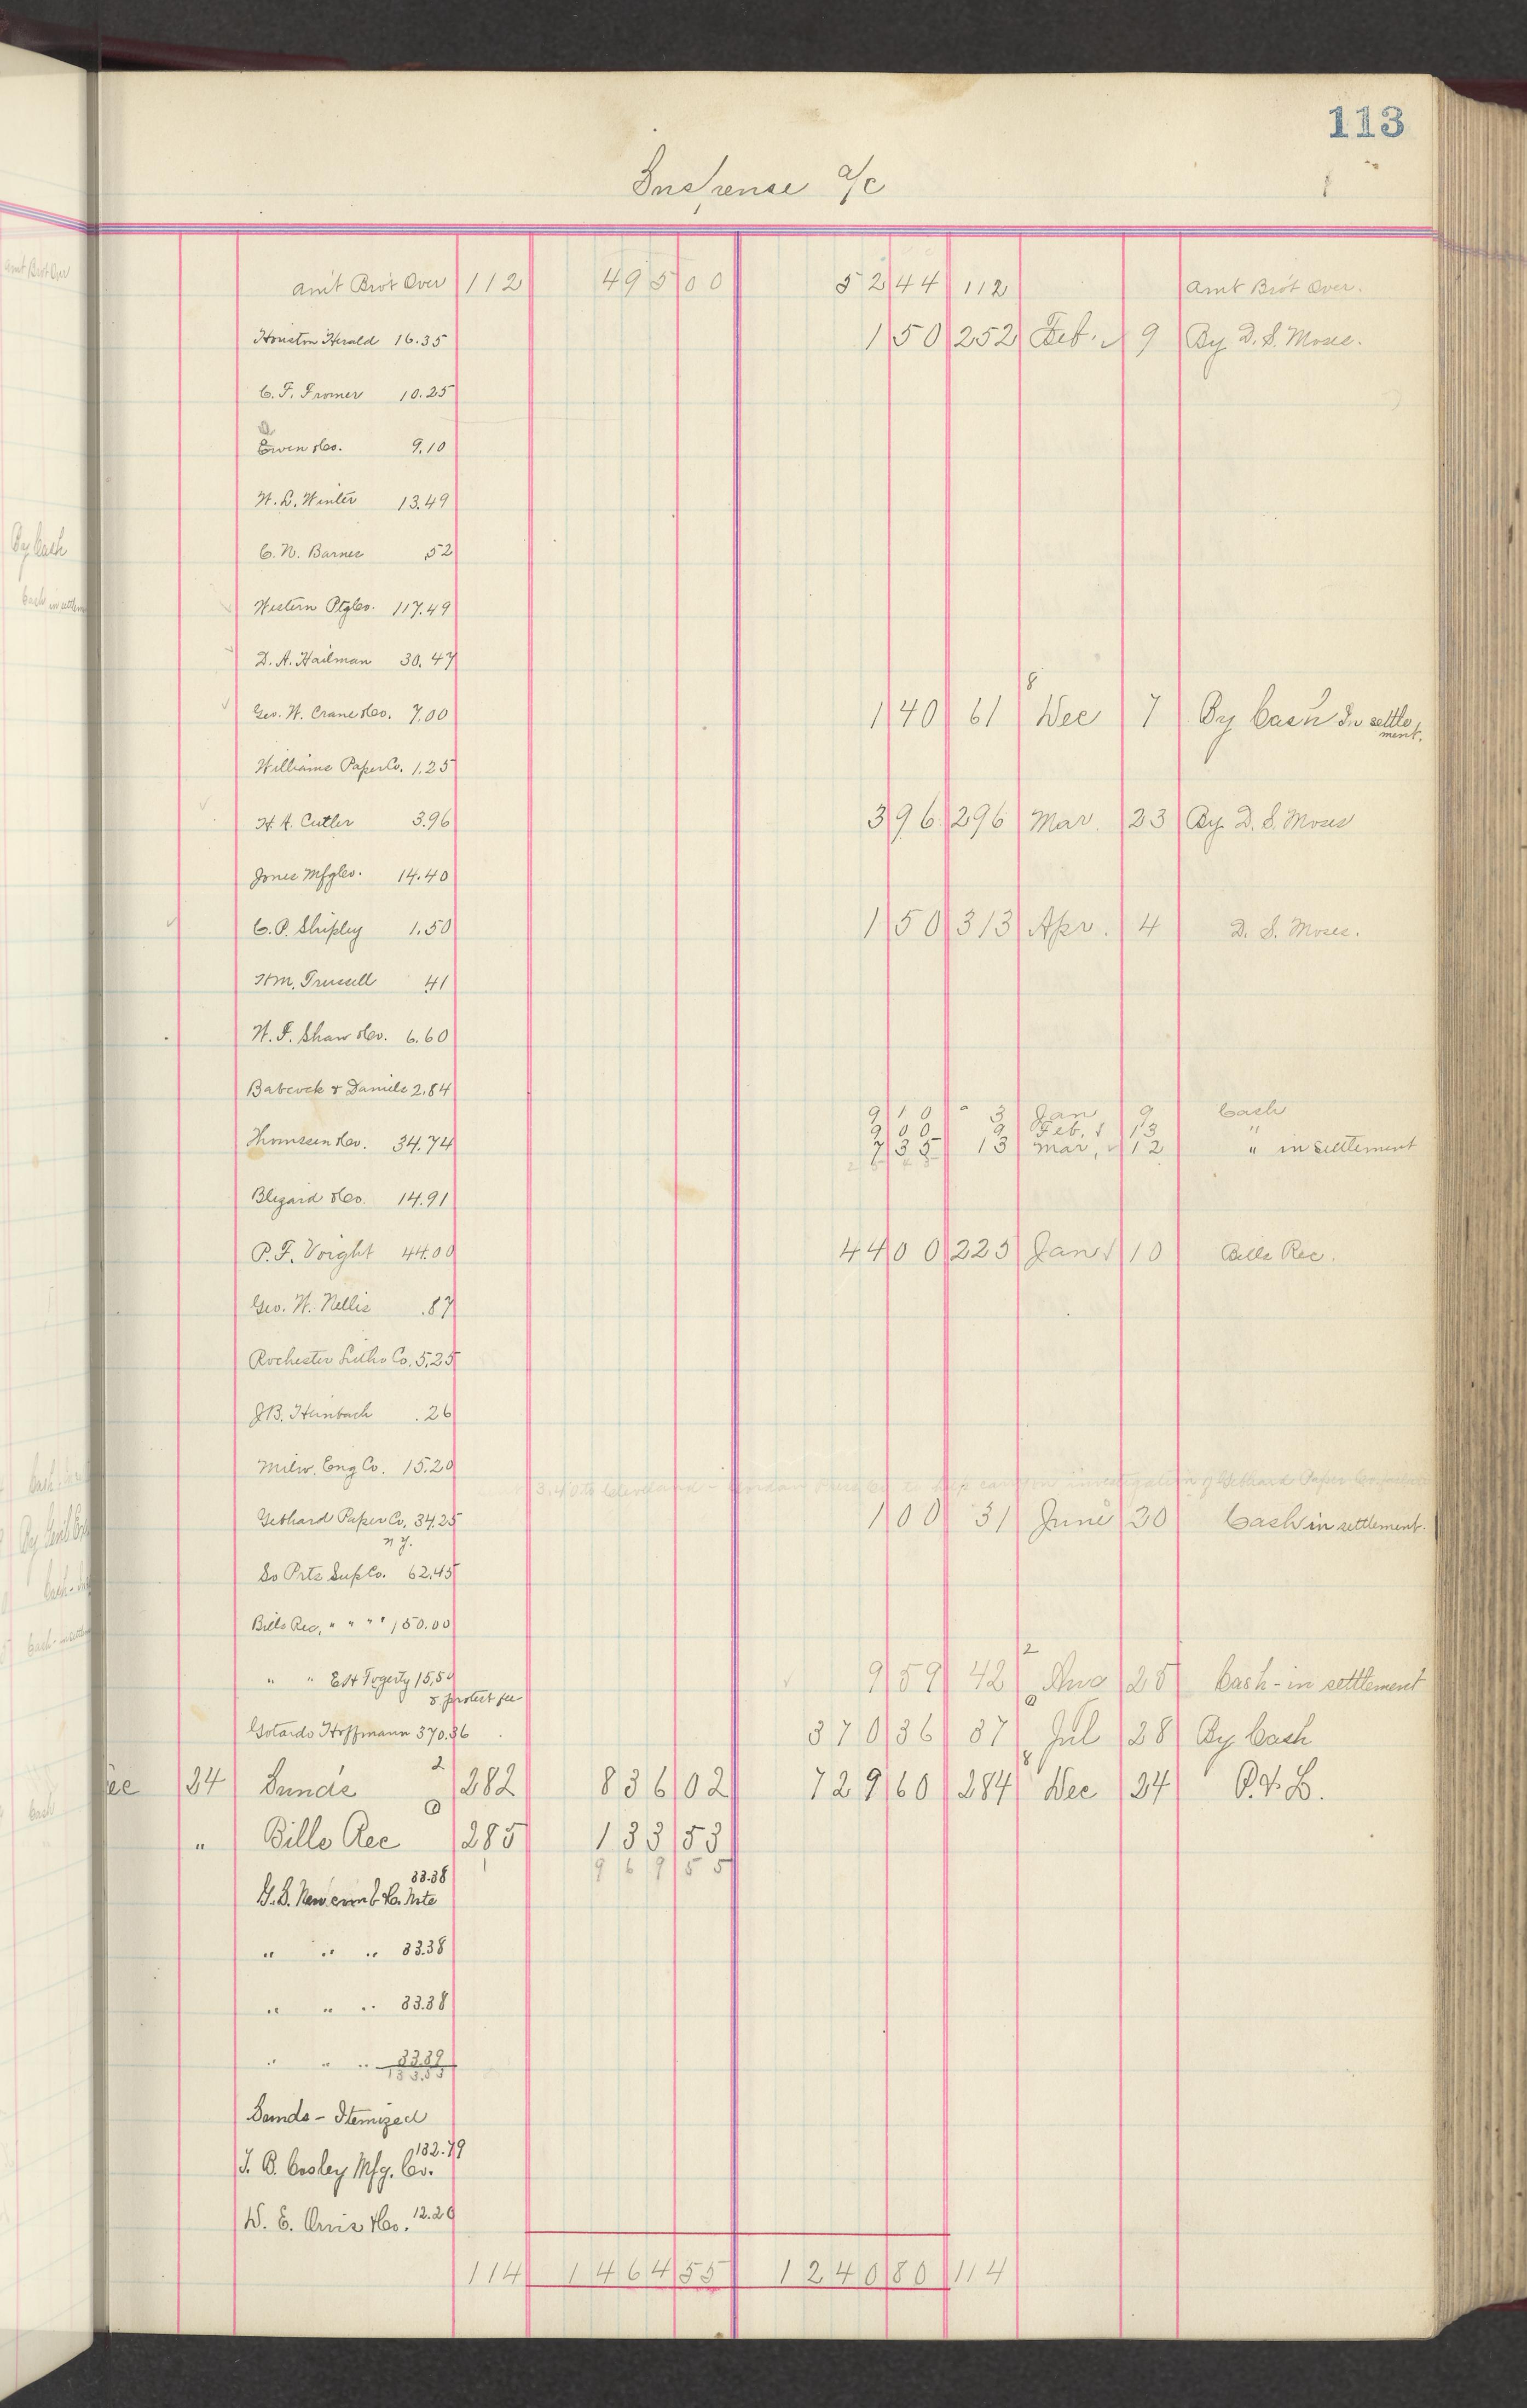 113
Suspense a/c
Amt Brot Over 112 495 00 52 44 112 Amt Brot Over.
Houston Herald 16.35 1 50 252 Feb. 9 By D. S. Moses.
C. F. Fromer 10.25
Owen & Co. 9.10
W. L. Winter 13.49
C. N. Barnes .52
Western Ptg Co. 117.49
D. A. Hailman 30.47
8
Geo. W. Crane & Co. 7.00 1 40 61 Dec 7 By Cash In settlement.
Williams Paper Co. 1.25
H. A. Cutler 3.96 3 96 296 Mar. 23 By D. S. Moses
Jones Mfg Co. 14.40
C. P. Shipley 1.50 1 50 313 Apr. 4 D. S. Moses.
Wm. Trussell .41
W. F. Shaw & Co. 6.60
Babcock & Daniels 2.84
9 10 3 Jan 9 Cash
9 00 9 Feb. 13 "
Thomssen & Co. 34.74 7 35 13 Mar. 12 " in settlement
Blizard & Co. 14.91
P. F. Voight 44.00 44 00 225 Jan 10 Bills Rec.
Geo. W. Nellis .87
Rochester Litho Co. 5.25
J B. Heinbach .26
Milw. Eng Co. 15.20
Gebhard Paper Co. 34.25 1 00 31 June 30 Cash in settlement.
N Y.
So Prts Sup Co. 62.45
Bills Rec, " " " 150.00
2
" " E H Fogerty 15.59 9 59 42 Aug 25 Cash - in settlement
& protest fee
Gotardo Hoffmann 370.36 370 36 37 Jul 28 By Cash
2 8
ec 24 Sunds 282 836 02 729 60 284 Dec 24 P. & L.
" Bills Rec 285 133 53
969 55
33.38
G. S. Newcomb & Co. Note
" " " 33.38
" " " 33.38
" " " 33.39
133.53
Sunds - Itemized
132.79
J. B. Cosley Mfg. Co.
W. E. Orvis & Co. 12.20
114 1464 55 1240 80 114